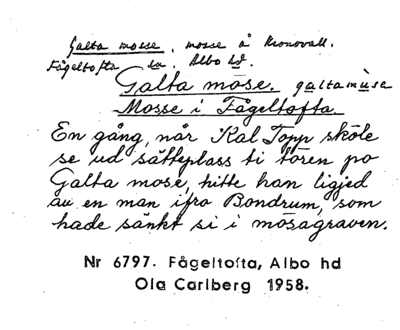 Galta mosse, mosse å Kronovall.
Fågeltofta sn. Albo hd.
Galta móse. galtamùsa
Mosse i Fågeltofta.
En gång, når Kal Topp skole
se ud sätteplass ti tören po
Galta mose, hitte han ligjed
au en man ifra Bondrum, som
hade sänkt si i mösagraven.
Nr 6797. Fågeltofta, Albo hd
Ola Carlberg 1958.